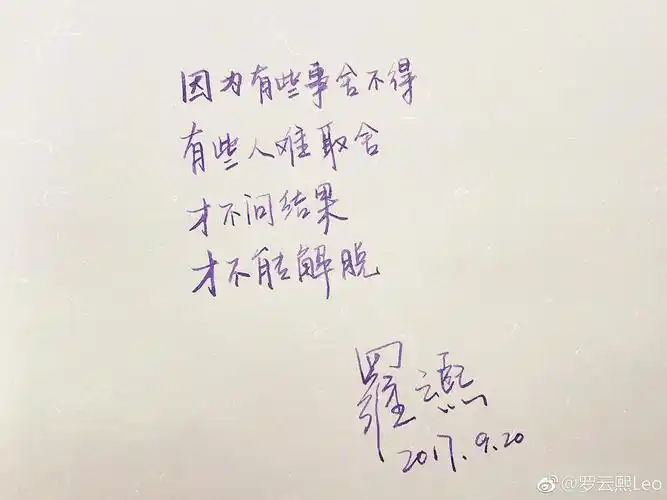 因为有些事舍不得
有些人难取舍
才不问结果
才不能解脱
羅云熙
2017.9.20
@罗云熙Leo